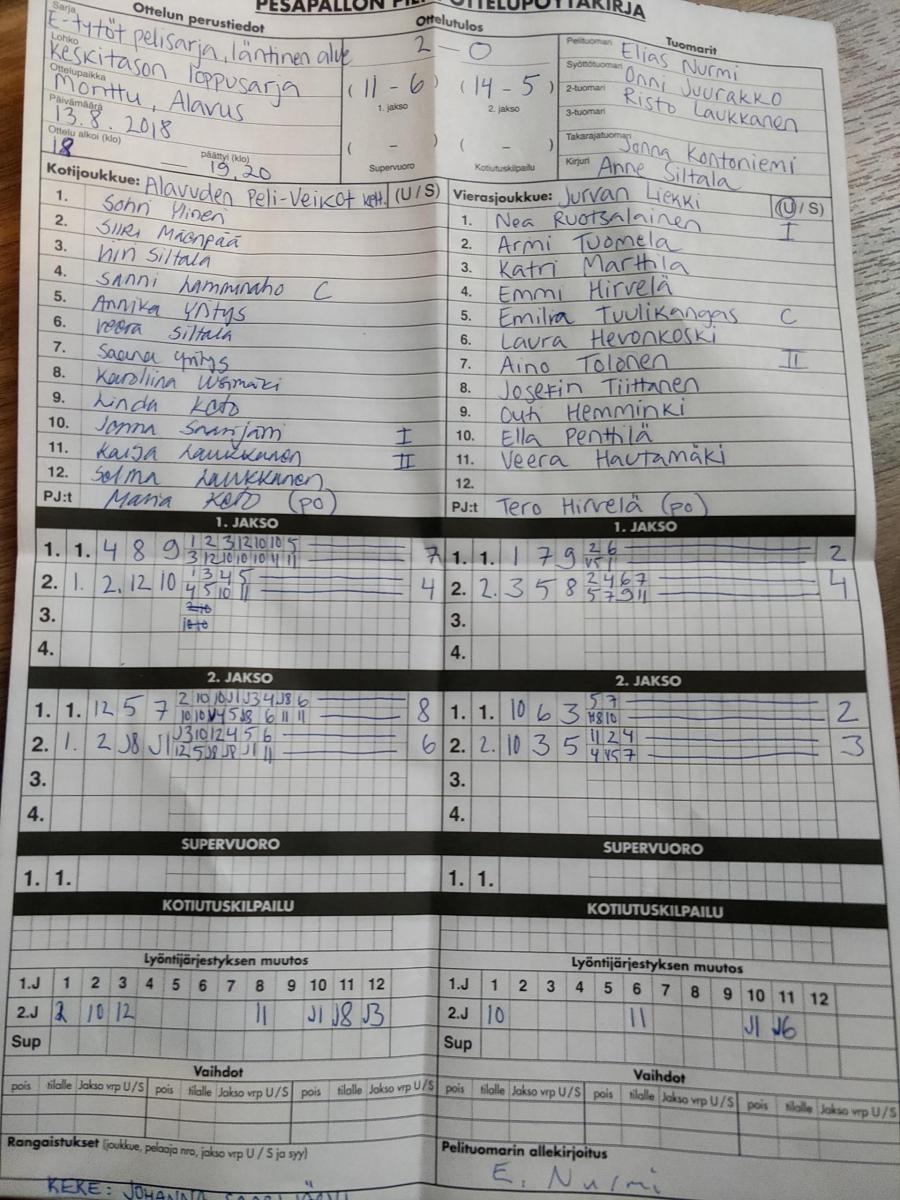 PESÄPALLON OTTELUPÖYTÄKIRJA
Ottelun perustiedot
Sarja
E-tytöt pelisarja, läntinen alue
Lohko
Keskitason loppusarja
Ottelupaikka
Monttu, Alavus
Päivämäärä
13.8.2018
Ottelu alkoi (klo)
18
päättyi (klo)
19.20
Ottelutulos
2 - 0
(11 - 6) (14 - 5)
1. jakso 2. jakso
( - ) ( - )
Supervuoro Kotiutuskilpailu
Tuomarit
Pelituomari Elias Nurmi
Syöttötuomari Onni Juurakko
2-tuomari Risto Laukkanen
3-tuomari
Takarajatuomari Jonna Kontoniemi
Kirjuri Anne Siltala
Kotijoukkue: Alavuden Peli-Veikot (U / S)
1. Ylinen
2. Siiri Mäenpää
3. Siltala
4. Sanni Lamminaho C
5. Annika Yritys
6. Veera Siltala
7. Saana Yritys
8. Karoliina
9. Linda Keto
10. Jonna I
11. Kaija Laukkanen II
12. Selma Laukkanen
PJ:t Maria Keto (po)
Vierasjoukkue: Jurvan Liekki (U / S)
1. Nea Ruotsalainen I
2. Armi Tuomela
3. Katri Marttila
4. Emmi Hirvelä
5. Emilia Tuulikangas C
6. Laura Hevonkoski
7. Aino Tolonen II
8. Josefin Tiittanen
9. Outi Hemminki
10. Ella Penttilä
11. Veera Hautamäki
12.
PJ:t Tero Hirvelä (po)
1. JAKSO
1. 1. 4 8 9 1 2 3 12 10 10 5 7
3 12 10 10 10 4 11
2. 1. 2. 12 10 1 3 4 5 4
4 5 10 11
3.
4.
1. JAKSO
1. 1. 1 7 9 2 6 2
2. 2. 3 5 8 2 4 6 7 4
5 7 9 11
3.
4.
2. JAKSO
1. 1. 12 5 7 2 10 10 J1 J3 4 J8 6 8
2. 1. 2 J8 J1 J3 10 12 4 5 6 6
3.
4.
2. JAKSO
1. 1. 10 6 3 5 7 2
2. 2. 10 3 5 11 2 4 3
3.
4.
SUPERVUORO
1. 1.
SUPERVUORO
1. 1.
KOTIUTUSKILPAILU
KOTIUTUSKILPAILU
Lyöntijärjestyksen muutos
1.J 1 2 3 4 5 6 7 8 9 10 11 12
2.J 2 10 12 11 J1 J8 J3
Sup
Lyöntijärjestyksen muutos
1.J 1 2 3 4 5 6 7 8 9 10 11 12
2.J 10 11 J1 J6
Sup
Vaihdot
pois tilalle Jakso vrp U / S pois tilalle Jakso vrp U / S pois tilalle Jakso vrp U / S
Vaihdot
pois tilalle Jakso vrp U / S pois tilalle Jakso vrp U / S pois tilalle Jakso vrp U / S
Rangaistukset (joukkue, pelaaja nro, jakso vrp U / S ja syy)
Pelituomarin allekirjoitus
E. Nurmi
KEKE: JOHANNA